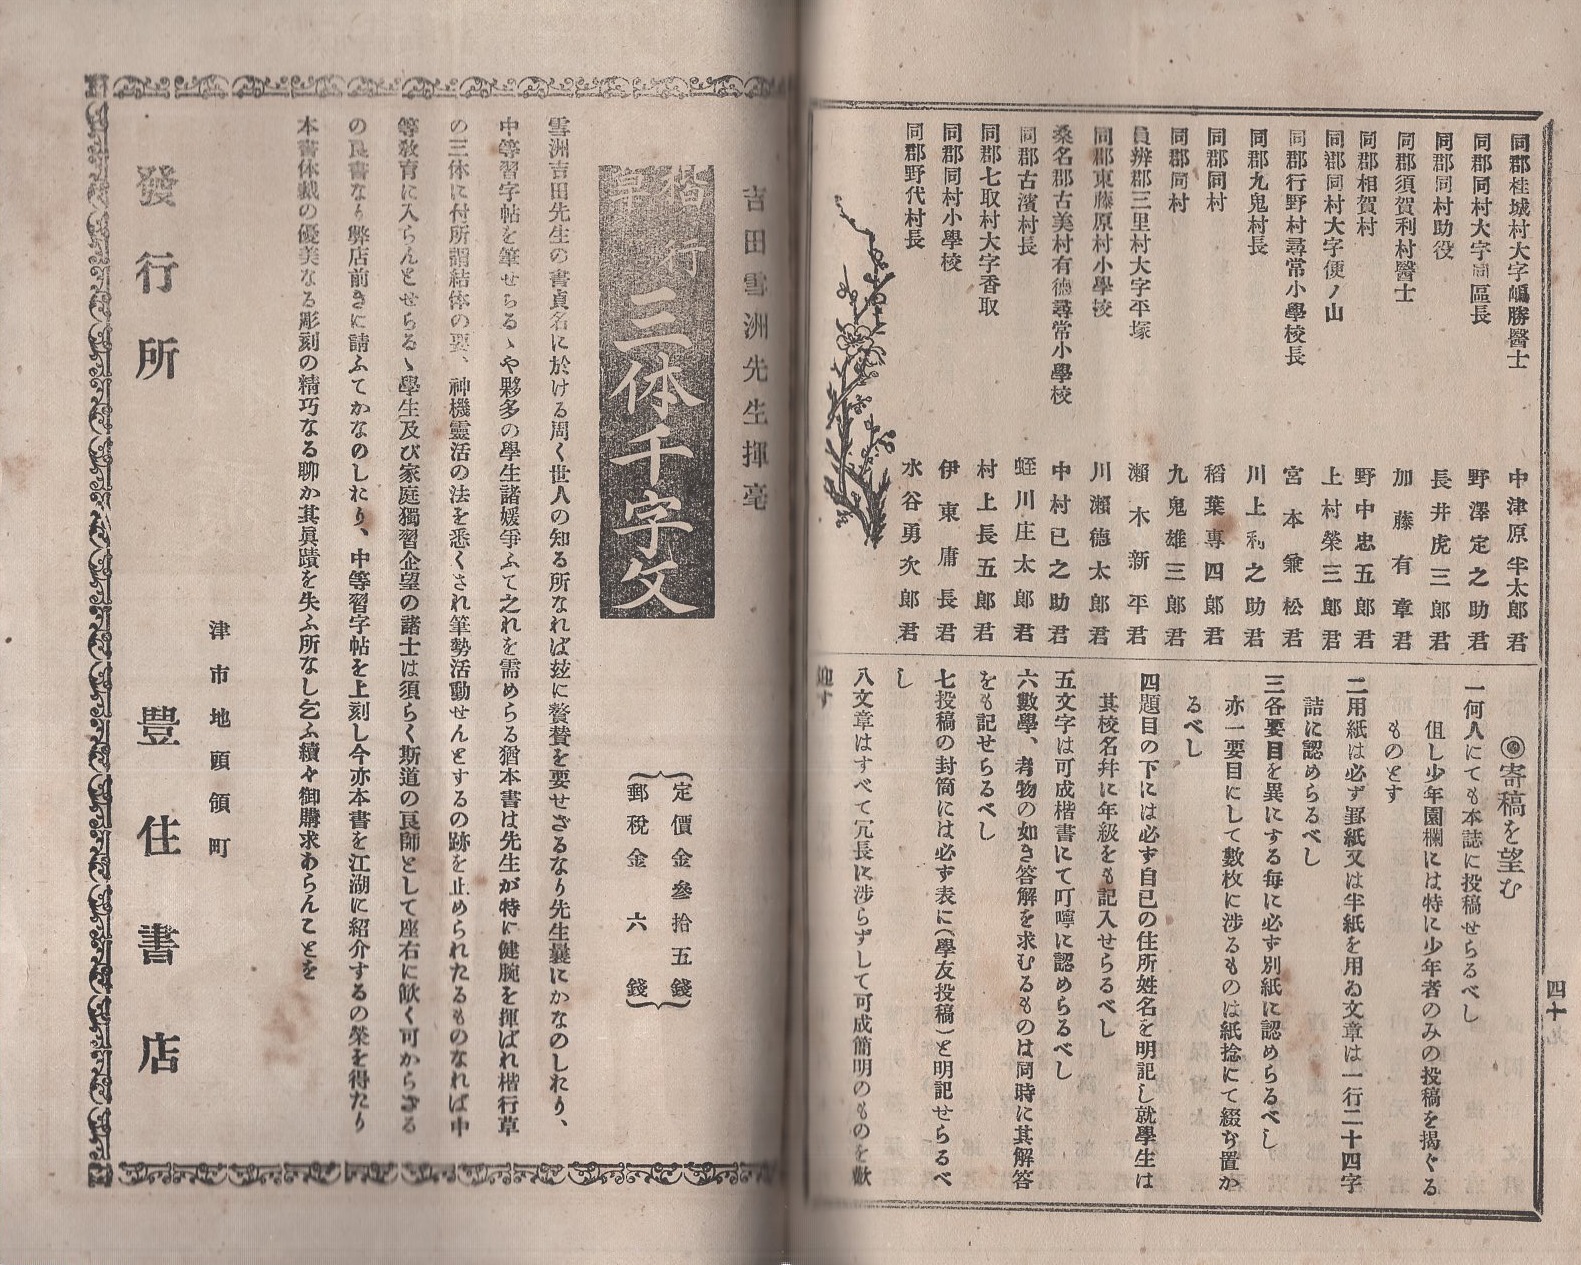 四十九
同郡桂城村大字嶋勝醫士 中津原半太郎君
同郡同村大字同區長 野澤定之助君
同郡同村助役 長井虎三郎君
同郡須賀利村醫士 加藤有章君
同郡相賀村 野中忠五郎君
同郡同村大字便ノ山 上村榮三郎君
同郡行野村尋常小學校長 宮本兼松君
同郡九鬼村長 川上利之助君
同郡同村 稻葉專四郎君
同郡同村 九鬼雄三郎君
員辨郡三里村大字平塚 瀨木新平君
同郡東藤原村小學校 川瀨德太郎君
桑名郡古美村有德尋常小學校 中村已之助君
同郡古濱村長 蛭川庄太郎君
同郡七取村大字香取 村上長五郎君
同郡同村小學校 伊東庸長君
同郡野代村長 水谷勇次郎君
◎寄稿を望む
一何人にても本誌に投稿せらるべし
但し少年園欄には特に少年者のみの投稿を揭ぐる
ものとす
二用紙は必ず罫紙又は半紙を用ゐ文章は一行二十四字
詰に認めらるべし
三各要目を異にする每に必ず別紙に認めらるべし
亦一要目にして數枚に涉るものは紙捻にて綴ぢ置か
るべし
四題目の下には必ず自已の住所姓名を明記し就學生は
其校名幷に年級をも記入せらるべし
五文字は可成楷書にて叮嚀に認めらるべし
六數學、考物の如き答解を求むるものは同時に其解答
をも記せらるべし
七投稿の封筒には必ず表に(學友投稿)と明記せらるべ
し
八文章はすべて冗長に涉らずして可成簡明のものを歡
迎す
吉田雪洲先生揮毫
楷行草三体千字文
定價金參拾五錢
郵稅金六錢
雪洲吉田先生の書眞名に於ける周く世人の知る所なれば玆に贅賛を要せざるなり先生曩にかなのしをり、
中等習字帖を筆せらるゝや夥多の學生諸媛爭ふて之れを需めらる猶本書は先生が特に健腕を揮はれ楷行草
の三体に付所謂結体の要、神機靈活の法を悉くされ筆勢活動せんとするの跡を止められたるものなれば中
等敎育に入らんとせらるゝ學生及び家庭獨習企望の諸士は須らく斯道の良師として座右に歟く可からざる
の良書なり弊店前きに請ふてかなのしをり、中等習字帖を上刻し今亦本書を江湖に紹介するの榮を得たり
本書体裁の優美なる彫刻の精巧なる聊か其眞蹟を失ふ所なし乞ふ續々御購求あらんことを
津市地頭領町
發行所 豊住書店